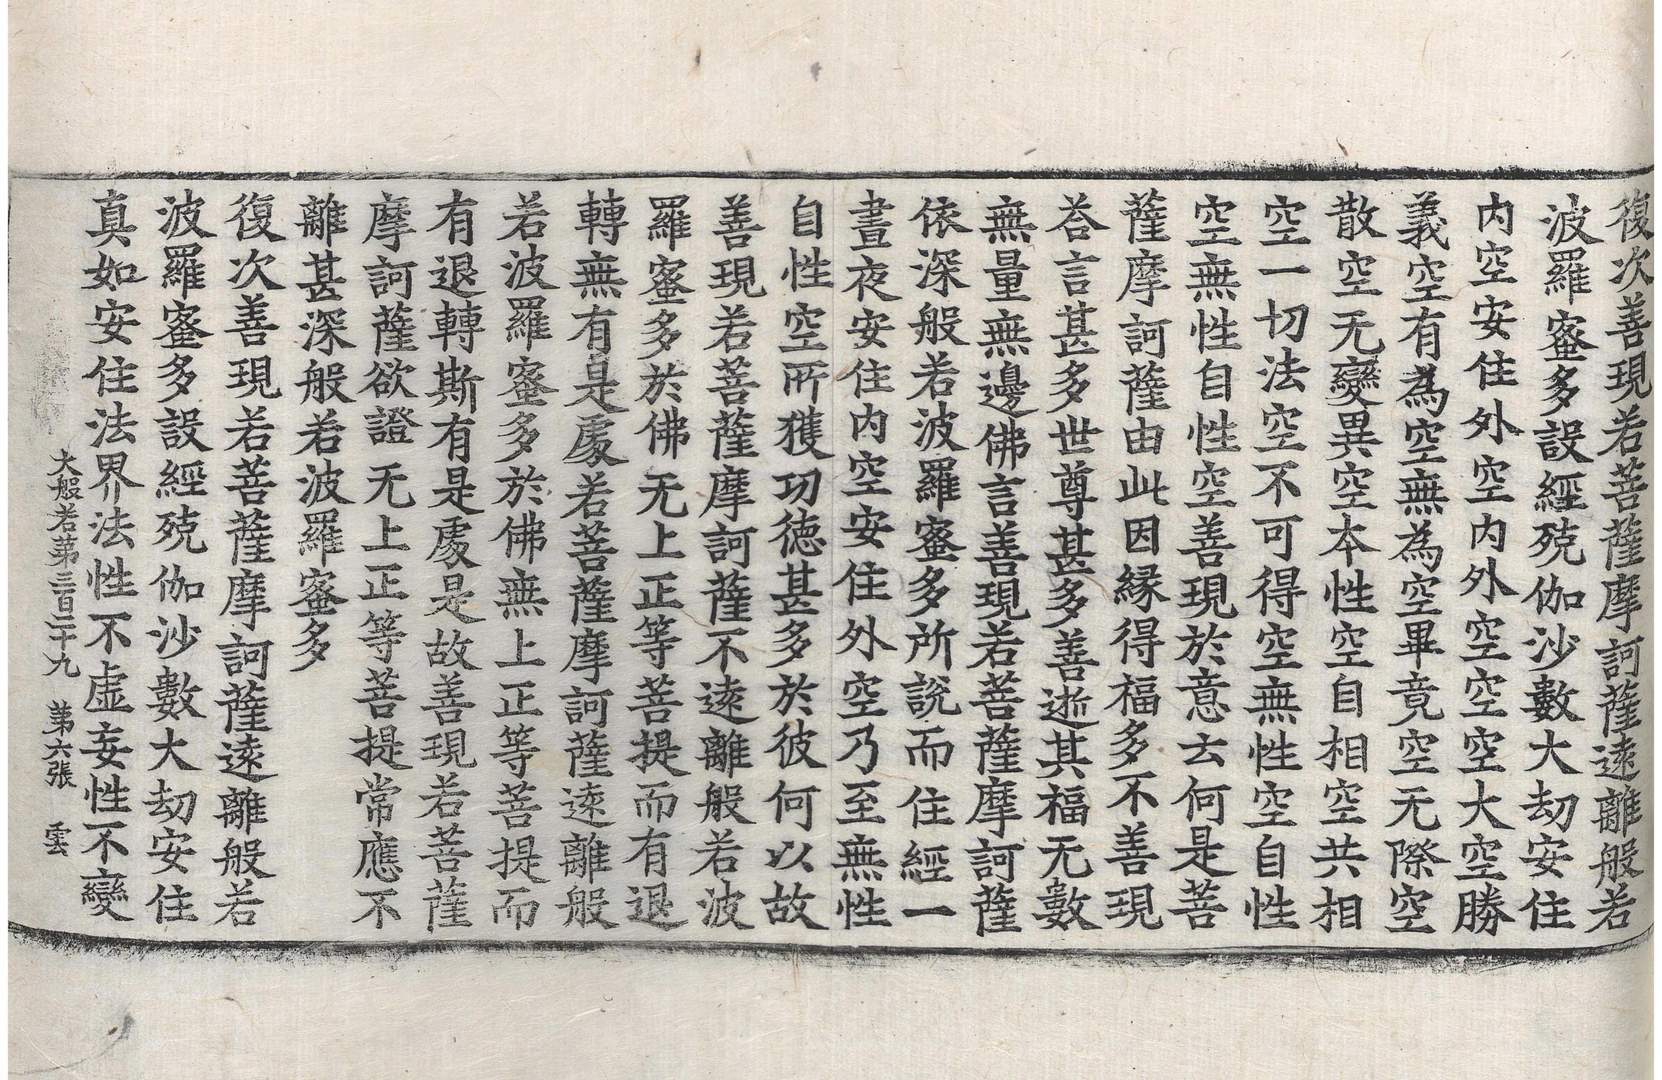 復次善現若菩薩摩訶薩逺離般若
波羅蜜多設經殑伽沙數大劫安住
内空安住外空内外空空空大空勝
義空有為空無為空畢竟空无際空
散空无變異空本性空自相空共相
空一切法空不可得空無性空自性
空無性自性空善現於意云何是菩
薩摩訶薩由此因縁得福多不善現
荅言甚多世尊甚多善逝其福无數
無量無邊佛言善現若菩薩摩訶薩
依深般若波羅蜜多所說而住經一
晝夜安住内空安住外空乃至無性
自性空所獲功德甚多於彼何以故
善現若菩薩摩訶薩不逺離般若波
羅蜜多於佛无上正等菩提而有退
轉無有是處若菩薩摩訶薩逺離般
若波羅蜜多於佛無上正等菩提而
有退轉斯有是處是故善現若菩薩
摩訶薩欲證无上正等菩提常應不
離甚深般若波羅蜜多
復次善現若菩薩摩訶薩逺離般若
波羅蜜多設經殑伽沙數大劫安住
真如安住法界法性不虛妄性不變
大般若第三百二十九 第六張 雲